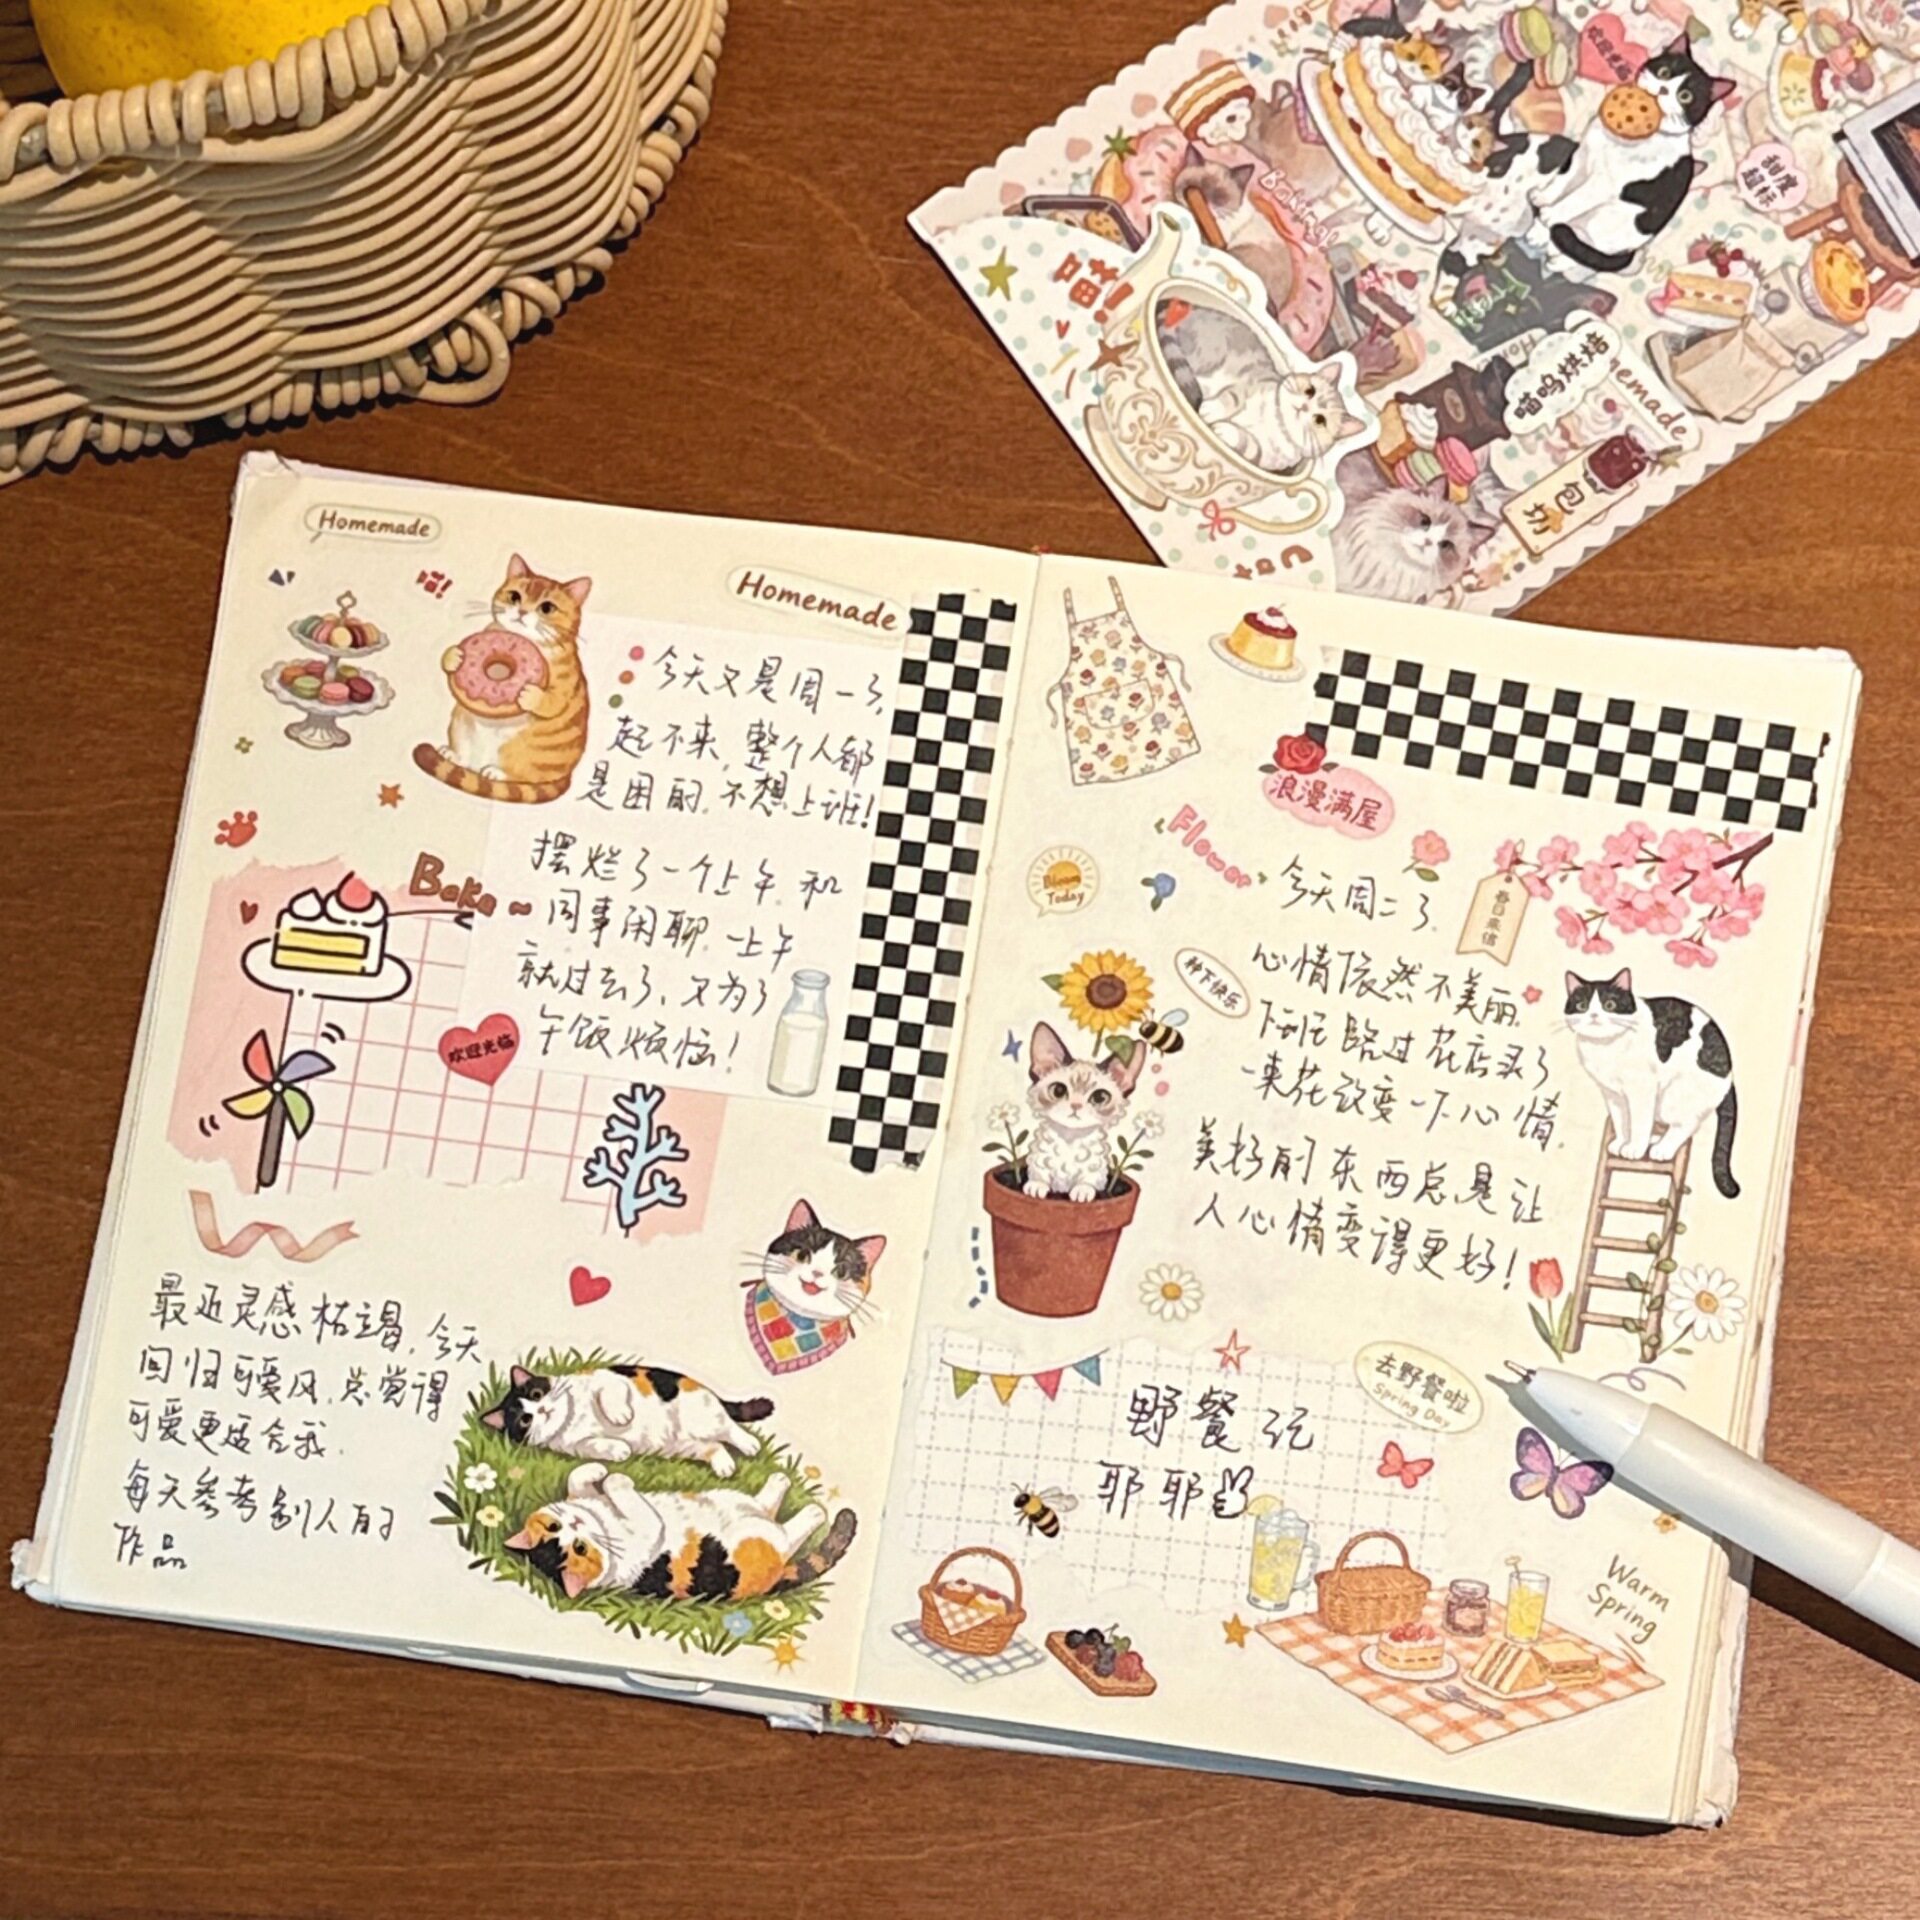 喵!
Baking!
欢迎光临
甜度
超标
喵呜烘焙
Homemade
包
坊
Homemade
喵!
Homemade
今天又是周一了,
起不来,整个人都
是困的.不想上班!
摆烂了一个上午.和
同事闲聊.一上午
就过去了,又为了
午饭烦恼!
Bake~
欢迎光临
最近灵感枯竭,今天
回归可爱风.总觉得
可爱更适合我.
每天参考别人的
作品
浪漫满屋
Flower
Bloom
Today
春日来信
种下快乐
今天周二了.
心情依然不美丽.
下班路过花店买了
一束花改变一下心情.
美好的东西总是让
人心情变得更好!
去野餐啦
Spring Day
野餐记
耶耶✌
Warm
Spring